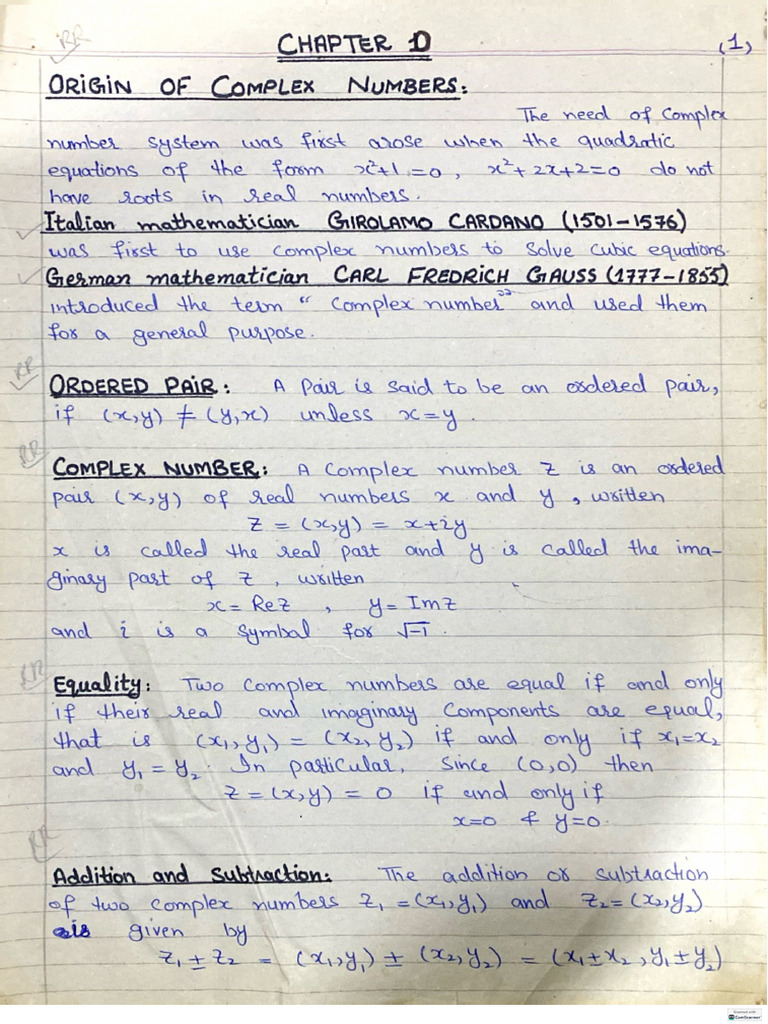 RR
CHAPTER 1
(1)
ORIGIN OF COMPLEX NUMBERS:
The need of complex
number system was first arose when the quadratic
equations of the form x²+1=0, x²+2x+2=0 do not
have roots in real numbers.
Italian mathematician GIROLAMO CARDANO (1501-1576)
was first to use complex numbers to solve cubic equations.
German mathematician CARL FREDRICH GAUSS (1777-1855)
introduced the term "complex number" and used them
for a general purpose.
RR
ORDERED PAIR: A pair is said to be an ordered pair,
if (x,y) ≠ (y,x) unless x=y.
RR
COMPLEX NUMBER: A complex number z is an ordered
pair (x,y) of real numbers x and y, written
z = (x,y) = x+iy
x is called the real part and y is called the ima-
ginary part of z, written
x = Re z , y = Im z
and i is a symbal for √-1.
RR
Equality: Two complex numbers are equal if and only
if their real and imaginary components are equal,
that is (x₁, y₁) = (x₂, y₂) if and only if x₁=x₂
and y₁ = y₂. In particular, since (0,0) then
z = (x,y) = 0 if and only if
x=0 & y=0.
RR
Addition and Subtraction: The addition or subtraction
of two complex numbers z₁ = (x₁,y₁) and z₂ = (x₂,y₂)
is given by
z₁ ± z₂ = (x₁,y₁) ± (x₂,y₂) = (x₁±x₂, y₁±y₂)
Scanned with
CamScanner